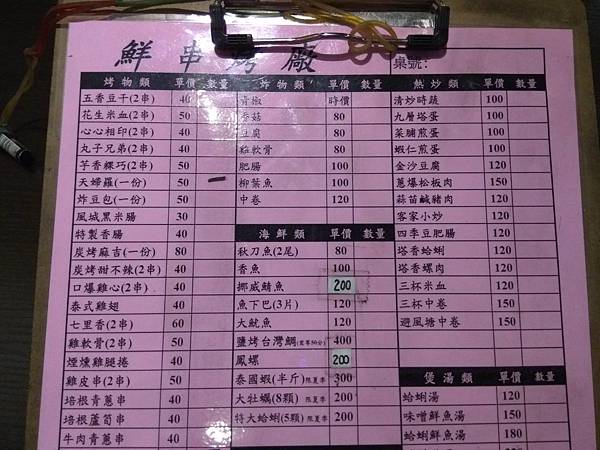 鮮串烤廠
桌號:
烤物類 單價 數量
五香豆干(2串) 40
花生米血(2串) 50
心心相印(2串) 40
丸子兄弟(2串) 40
芋香粿巧(2串) 50
天婦羅(一份) 50
炸豆包(一份) 50
風城黑米腸 30
特製香腸 40
炭烤麻吉(一份) 80
炭烤甜不辣(2串) 40
口爆雞心(2串) 40
泰式雞翅 40
七里香(2串) 60
雞軟骨(2串) 50
煙燻雞腿捲 40
雞皮串(2串) 50
培根青蔥串 40
培根蘆筍串 40
牛肉青蔥串 40
炸物類 單價 數量
青椒 時價
香菇 80
豆腐 80
雞軟骨 80
肥腸 100
柳葉魚 100
中卷 120
海鮮類 單價 數量
秋刀魚(2尾) 80
香魚 100
挪威鯖魚 200
魚下巴(3片) 120
大魷魚 120
鹽烤台灣鯛 400
鳳螺 200
泰國蝦(半斤) 限夏季 300
大牡蠣(8顆) 限夏季 200
特大蛤蜊(5顆) 限夏季 200
熱炒類 單價 數量
清炒時蔬 100
九層塔蛋 100
菜脯煎蛋 100
蝦仁煎蛋 100
金沙豆腐 120
蔥爆松板肉 150
蒜苗鹹豬肉 120
客家小炒 120
四季豆肥腸 120
塔香蛤蜊 120
塔香螺肉 120
三杯米血 120
三杯中卷 150
避風塘中卷 150
煲湯類 單價 數量
蛤蜊湯 120
味噌鮮魚湯 150
蛤蜊鮮魚湯 180